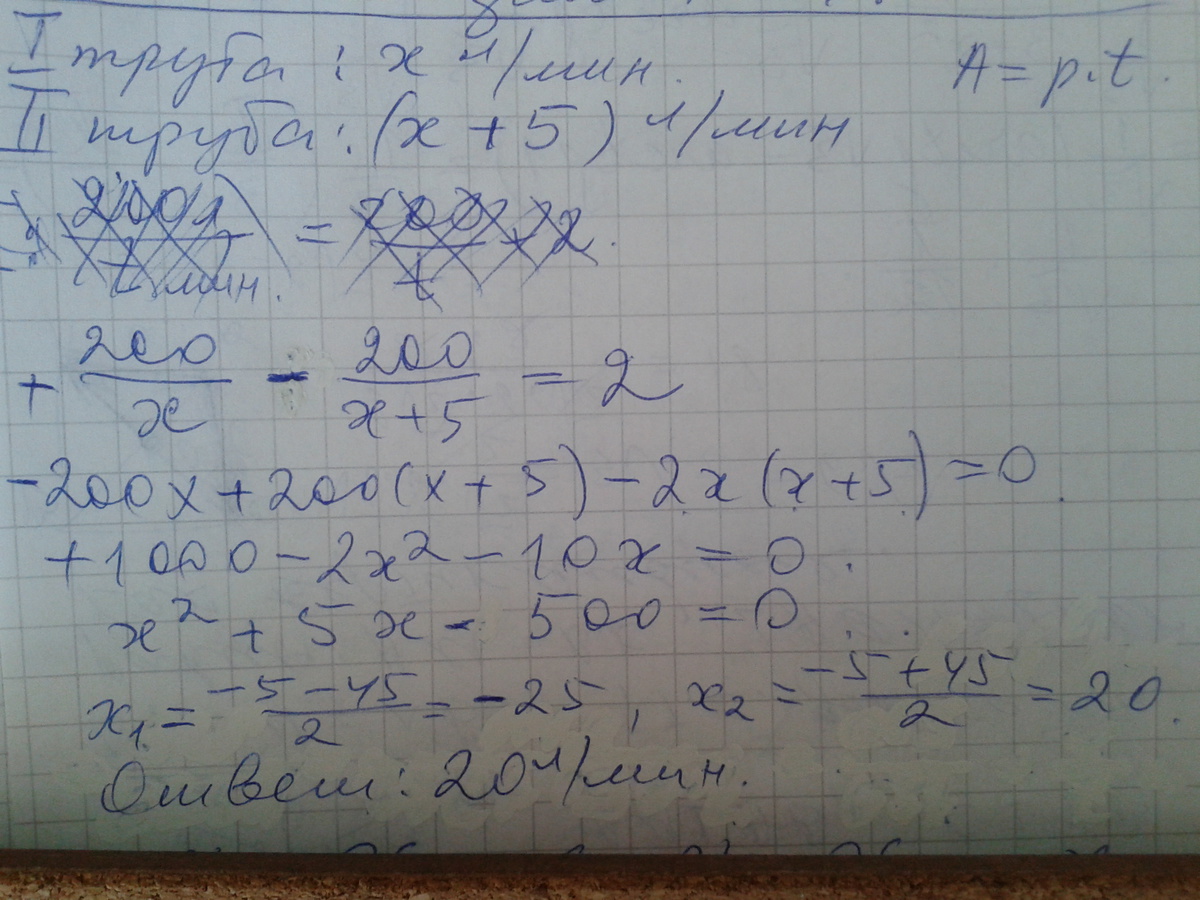 I труба : x л/мин. A = p.t.
II труба : (x + 5) л/мин
200 л / t мин. = 200 / t + 2.
+ 200/x - 200/(x+5) = 2
-200x + 200(x + 5) - 2x(x+5) = 0.
+1000 - 2x² - 10x = 0.
x² + 5x - 500 = 0.
x₁ = (-5-45)/2 = -25, x₂ = (-5+45)/2 = 20.
Ответ: 20 л/мин.